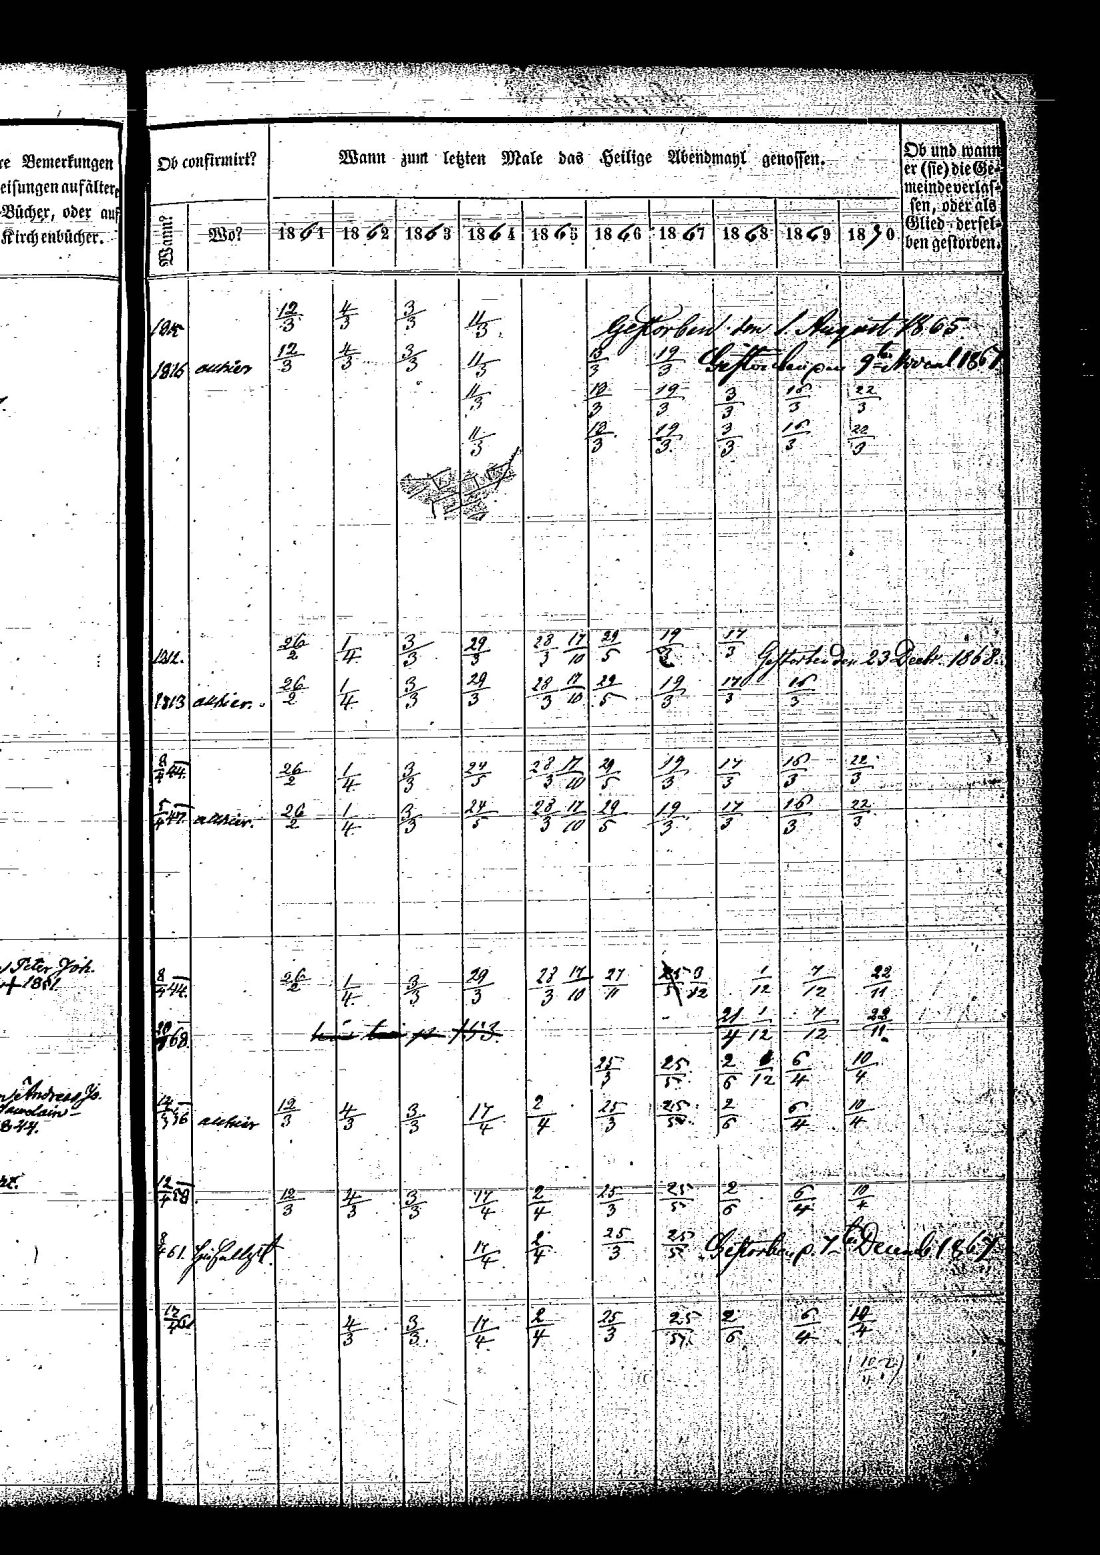 re Bemerkungen
eisungen auf ältere
Bücher, oder auf
Kirchenbücher.
Ob confirmirt?
Wann?
Wo?
Wann zum letzten Male das Heilige Abendmahl genossen.
1861 1862 1863 1864 1865 1866 1867 1868 1869 1870
Ob und wann
er (sie) die Ge-
meinde verlas-
sen, oder als
Glied dersel-
ben gestorben.
12/3 4/3 3/3 11/3 Gestorben den 1. August 1865
1816 allhier 12/3 4/3 3/3 11/3 19/3 Gestorben 9ten 1867.
11/3 19/3 3/3 16/3 22/3
11/3 19/3 3/3 16/3 22/3
1812. 26/2 1/4 3/3 29/3 28/3 17/10 29/5 19/3 17/3 Gestorben den 23 Decbr. 1868.
1813 allhier. 26/2 1/4 3/3 29/3 28/3 17/10 29/5 19/3 17/3 16/3
8/4 44. 26/2 1/4 3/3 24/5 28/3 17/10 29/5 19/3 17/3 16/3 22/3
47. allhier. 26/2 1/4 3/3 24/5 28/3 17/10 29/5 19/3 17/3 16/3 22/3
Peter Joh.
8/4 44. 26/2 1/4 3/3 29/3 28/3 17/10 27/11 1/12 7/12 22/11
68. 21/4 1/12 7/12 22/11
25/3 25/5 2/6 6/4 10/4
Andreas Jo.
1844.
56 allhier 12/3 4/3 3/3 17/4 2/4 25/3 25/5 2/6 6/4 10/4
12/4 58. 12/3 4/3 3/3 17/4 2/4 25/3 25/5 2/6 6/4 10/4
8/4 61. 17/4 2/4 25/3 25/5 Gestorben 7ten Decemb. 1867
4/3 3/3. 17/4 2/4 25/3 25/5 2/6 6/4 10/4